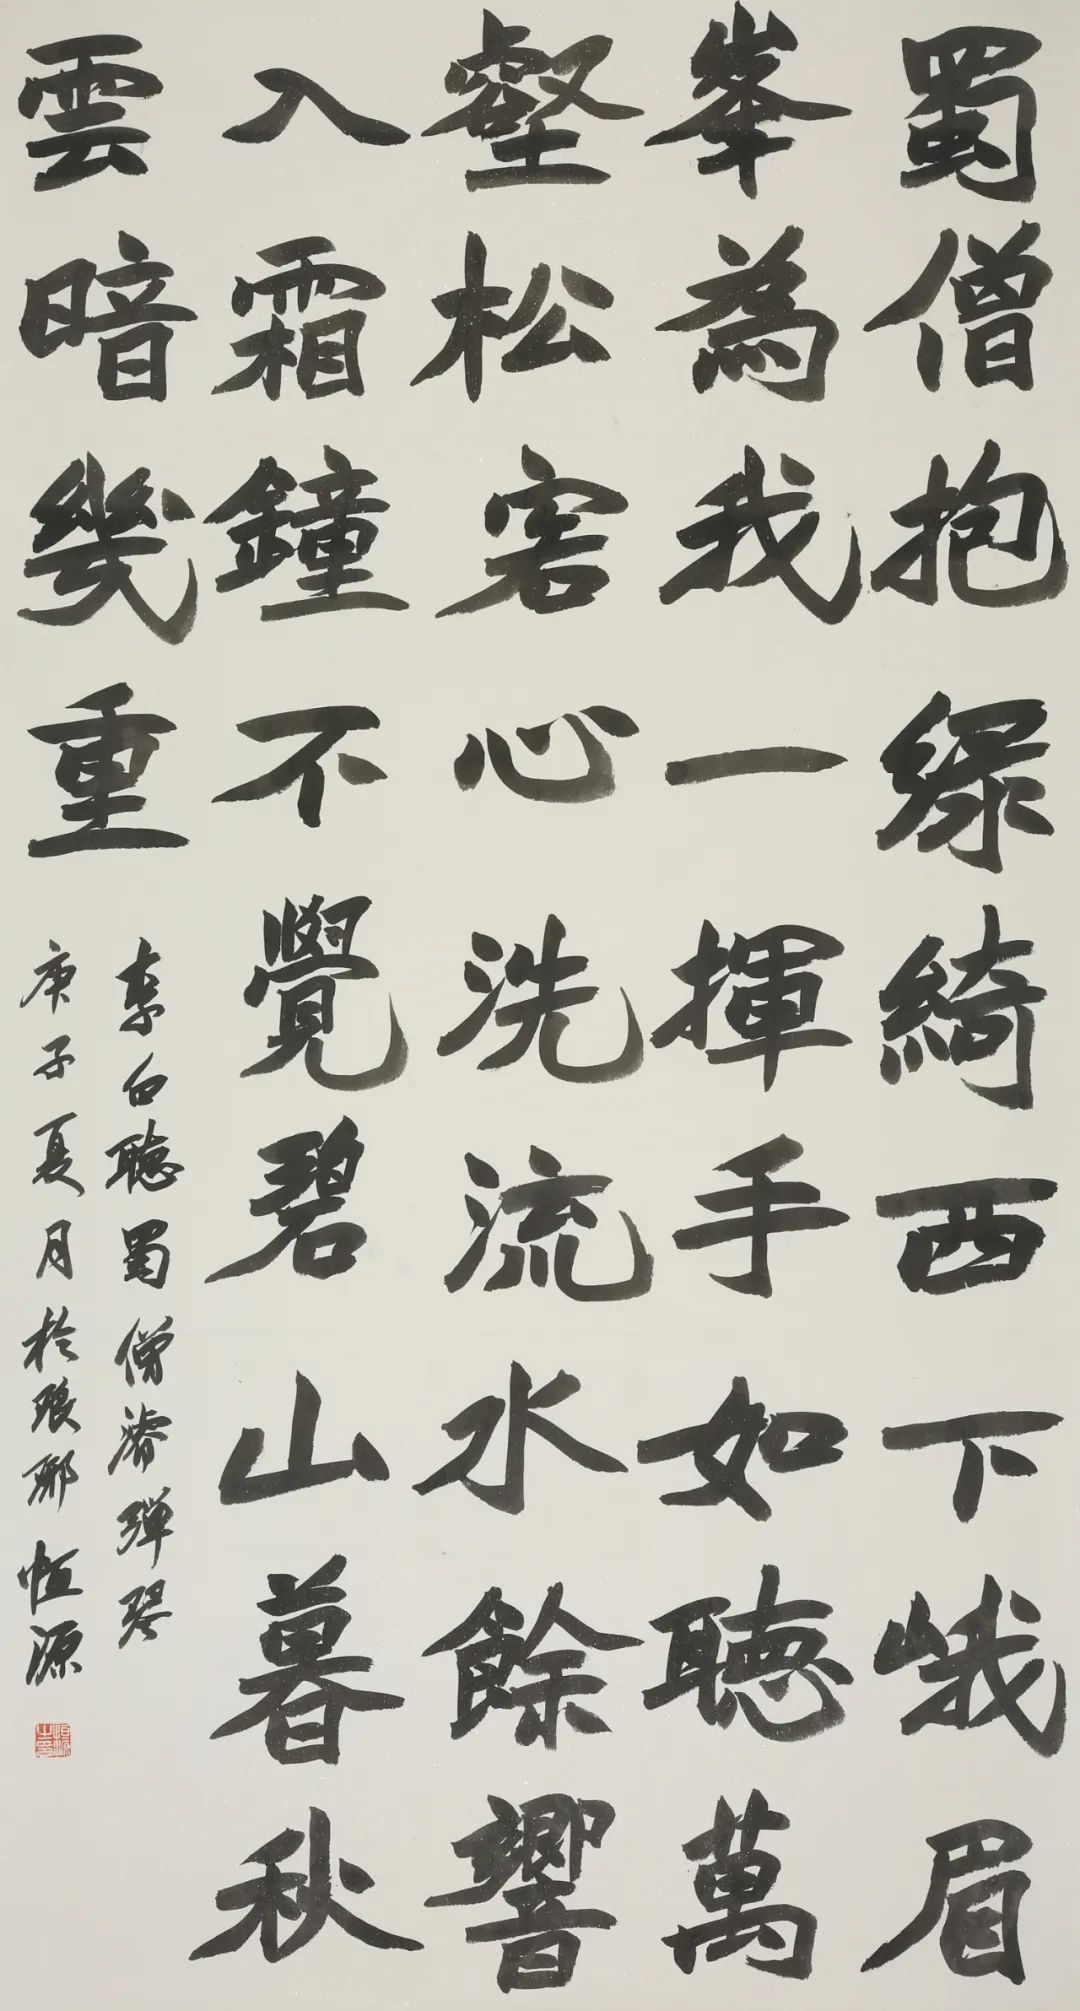 蜀僧抱綠綺西下峨眉
峯為我一揮手如聽萬
壑松客心洗流水餘響
入霜鐘不覺碧山暮秋
雲暗幾重
李白聽蜀僧濬彈琴
庚子夏月於琅琊恒源